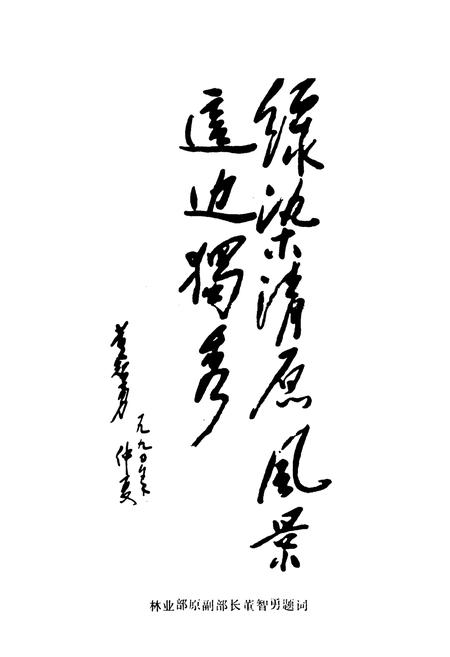 绿染清原風景
這边獨秀
董智勇
一九九〇年
仲夏
林业部原副部长董智勇题词